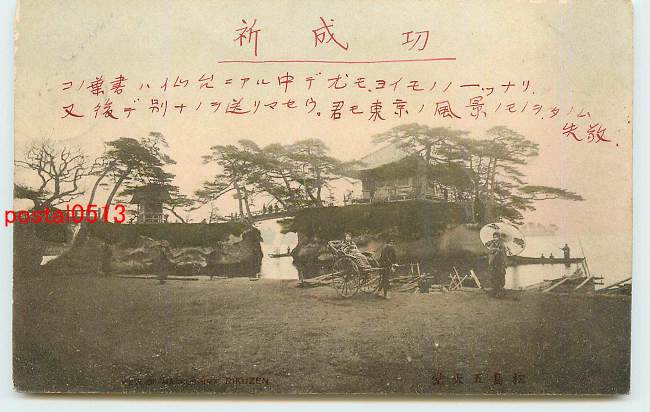 祈成功
コノ葉書ハ仙台ニアル中デ尤モヨイモノノ一ツナリ.
又後デ別ナノヲ送リマセウ。君モ東京ノ風景ノモノヲタノム
失敬.
postal0513
VIEW OF RIKUZEN
松島五大堂